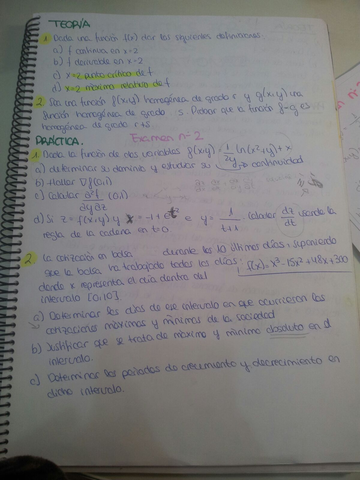 TEORÍA
1 Dada una función f(x) dar las siguientes definiciones:
a) f continua en x=2
b) f derivable en x=2
c) x=2 punto crítico de f
d) x=2 máximo relativo de f
2 Sea una función f(x,y) homogénea de grado r y g(x,y) una
función homogénea de grado s. Probar que la función f·g es
homogénea de grado r+s.
Examen nº2
PRÁCTICA.
1 Dada la función de dos variables f(x,y)= 1/2y ln(x²+y)+x
a) determinar su dominio y estudiar su continuidad
b) Hallar ∇f(0,1)
c) Calcular ∂²f/∂y∂x (0,1)
d) Si z=f(x,y) y x=-1+e^t e y= 1/t+1 Calcular dz/dt usando la
regla de la cadena en t=0.
2 La cotización en bolsa durante los 10 últimos días, suponiendo
que la bolsa ha trabajado todos los días: f(x)=x³-15x²+48x+300
donde x representa el día dentro del
intervalo [0,10].
a) Determinar los días de ese intervalo en que ocurrieron las
cotizaciones máximas y mínimas de la sociedad
b) Justificar que se trata de máximo y mínimo absoluto en el
intervalo.
c) Determinar los períodos de crecimiento y decrecimiento en
dicho intervalo.